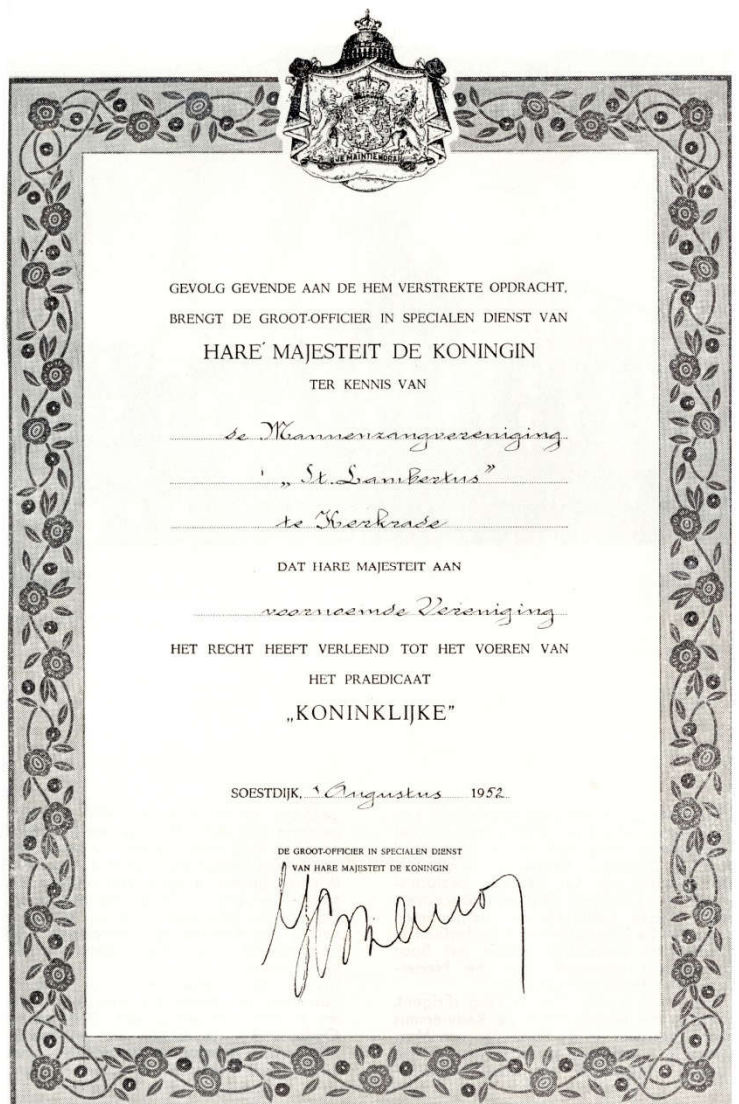 JE MAINTIENDRAI
GEVOLG GEVENDE AAN DE HEM VERSTREKTE OPDRACHT,
BRENGT DE GROOT-OFFICIER IN SPECIALEN DIENST VAN
HARE MAJESTEIT DE KONINGIN
TER KENNIS VAN
de Mannenzangvereniging
„St. Lambertus”
te Kerkrade
DAT HARE MAJESTEIT AAN
voornoemde Vereniging
HET RECHT HEEFT VERLEEND TOT HET VOEREN VAN
HET PRAEDICAAT
„KONINKLIJKE”
SOESTDIJK, Augustus 1952
DE GROOT-OFFICIER IN SPECIALEN DIENST
VAN HARE MAJESTEIT DE KONINGIN